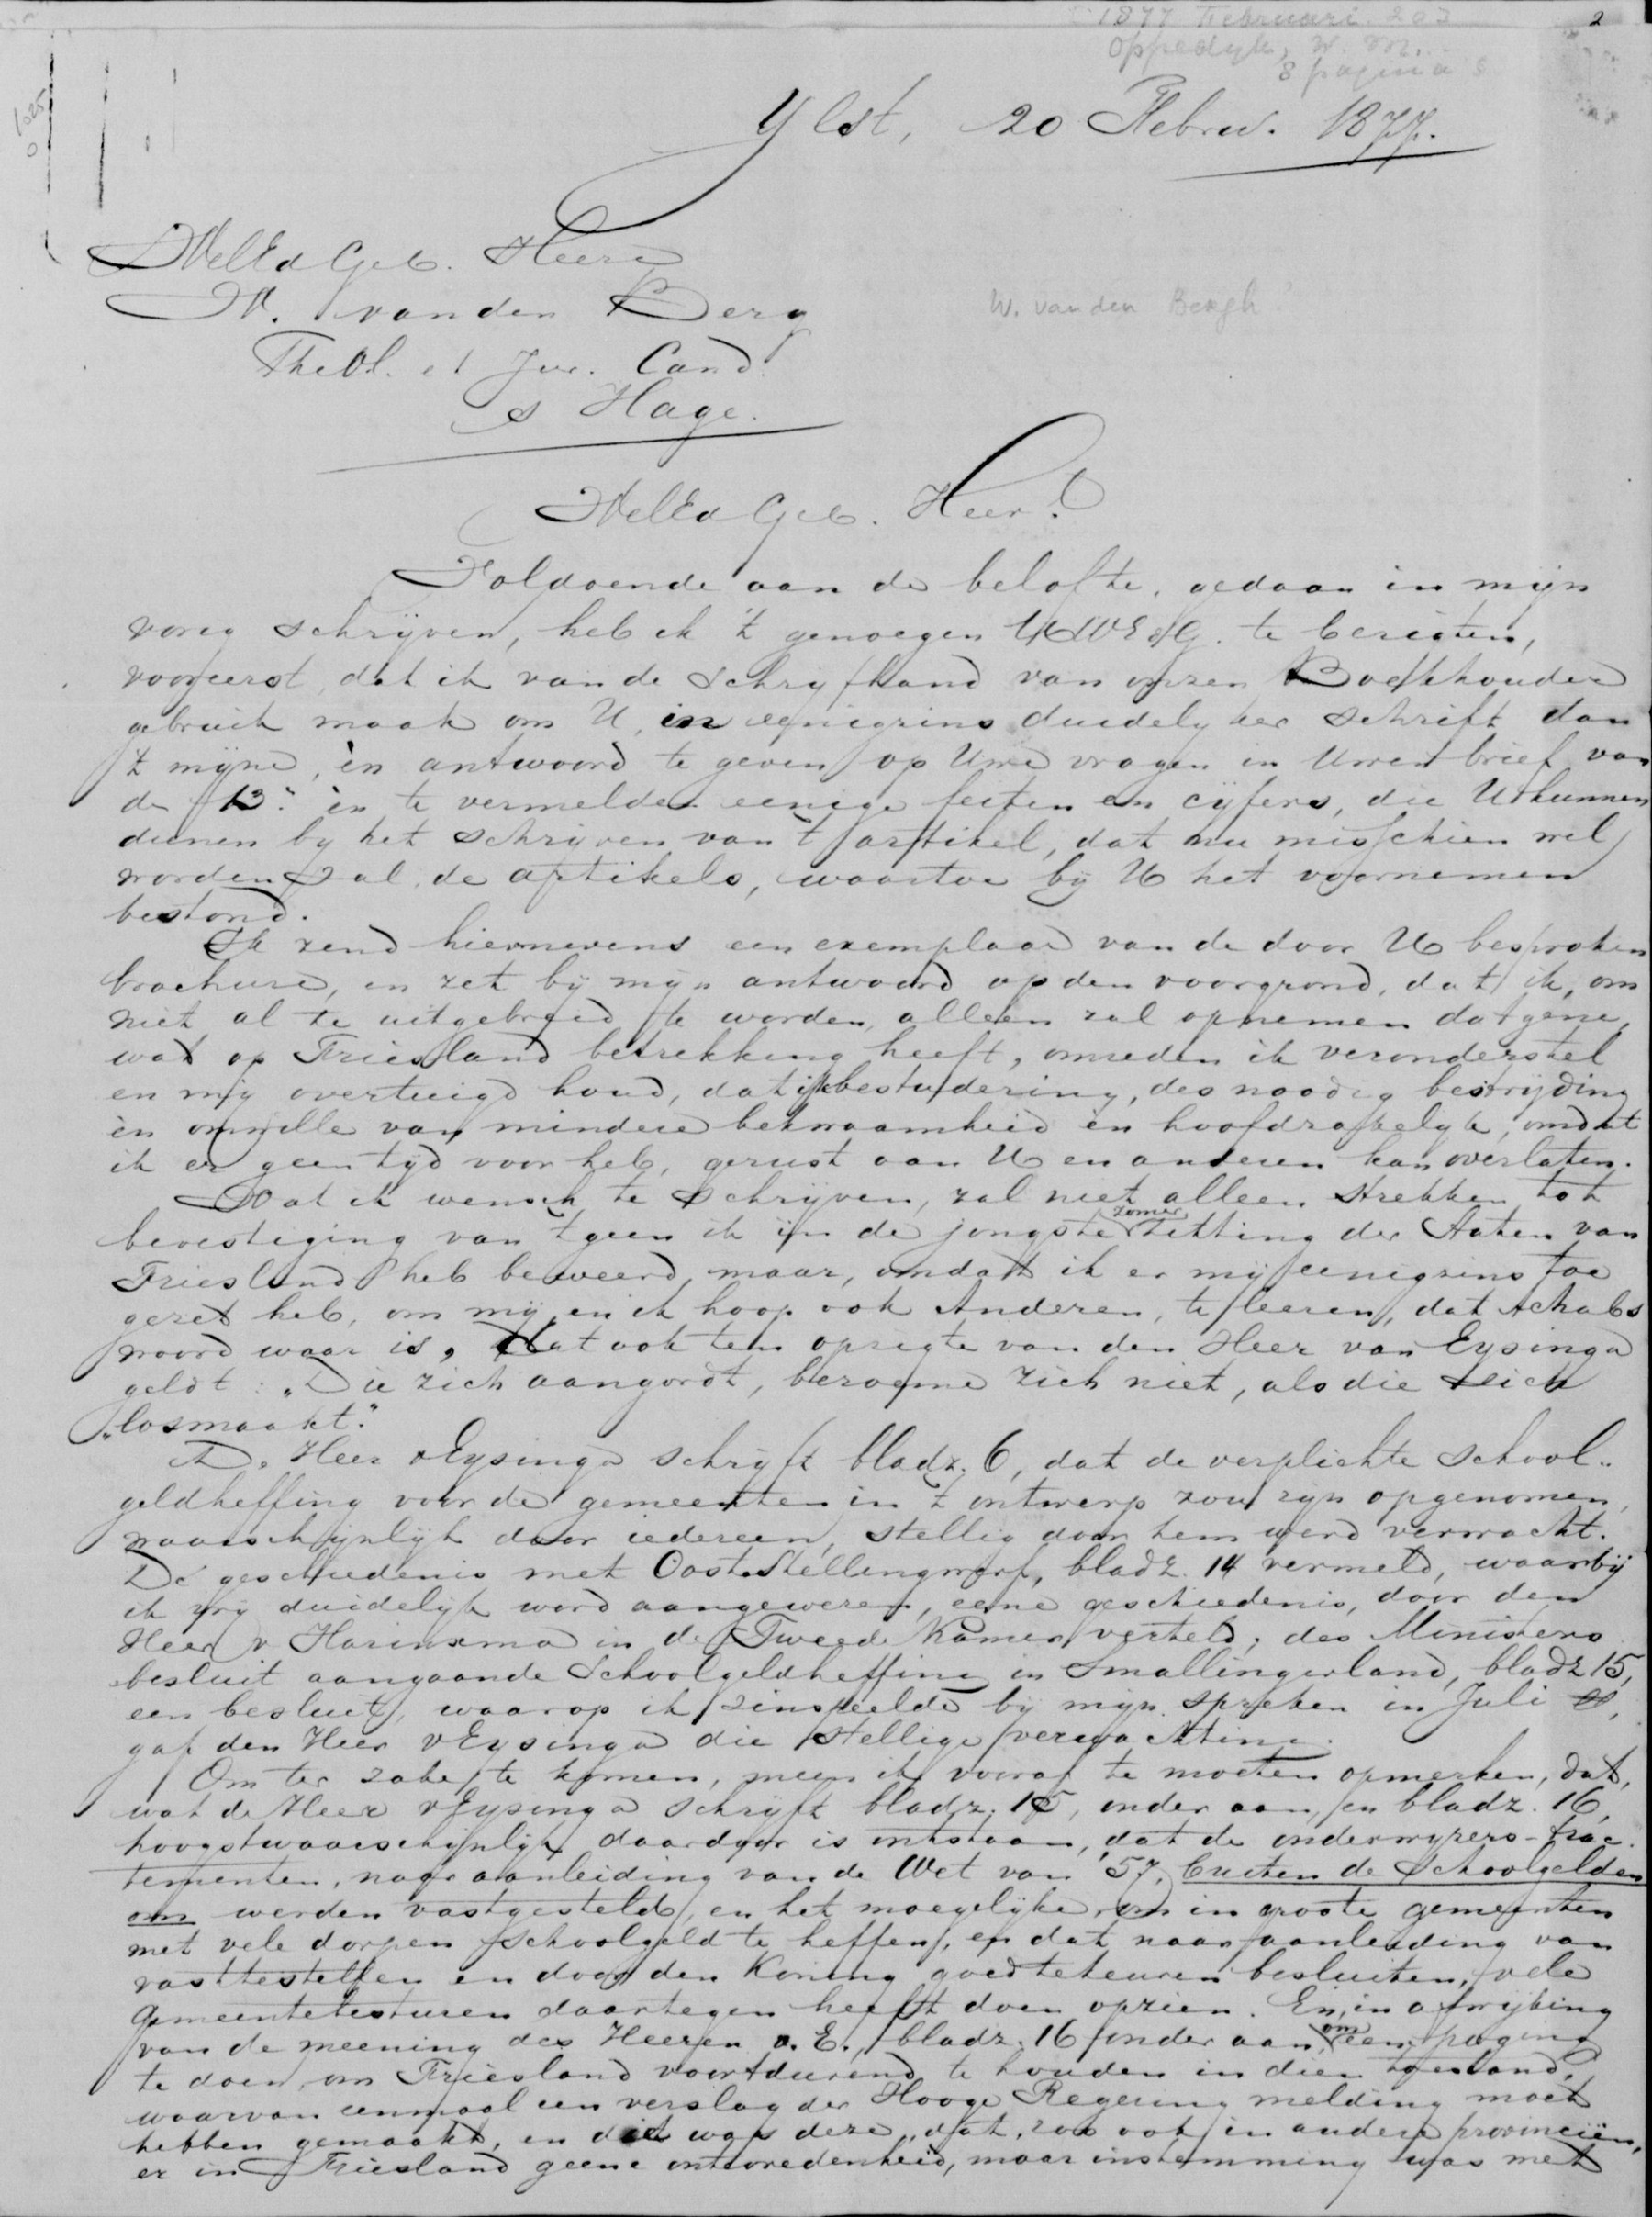 1877 Februari 20
2
Oppedijk, W. M.
8 pagina's
Ylst, 20 Februi. 1877.
WelEd Geb. Heere
W. van den Berg
W. van den Bergh
Theol. et Jur. Cand.
s Hage.
WelEd Geb. Heer!
Voldoende aan de belofte, gedaan in mijn
vorig schrijven, heb ik 't genoegen UWEdG. te berigten,
vooreerst, dat ik van de schryfhand van onzen Boekhouder
gebruik maak om U, in eenigzins duidelyker schrift dan
't mijne, èn antwoord te geven op Uwe vragen in Uwen brief van
de 13n. èn te vermelden eenige feiten en cijfers, die U kunnen
dienen by het schrijven van 't artikel, dat nu misschien wel
worden zal, de artikels, waartoe bij U het voornemen
bestond.
Ik zend hiernevens een exemplaar van de door U besproken
brochure, en zet bij mijn antwoord op den voorgrond, dat ik, om
niet al te uitgebreid te worden, alleen zal opnemen datgene,
wat op Friesland betrekking heeft, omreden ik veronderstel
en mij overtuigd houd, dat ik bestudering, des noodig bestrijding
èn omwille van mindere bekwaamheid èn hoofdzakelijk, omdat
ik er geen tijd voor heb, gerust aan U en anderen kan overlaten.
Wat ik wensch te schrijven, zal niet alleen strekken tot
bevestiging van 't geen ik in de jongste zomer zitting der Staten van
Friesland heb beweerd, maar, omdat ik er mij eenigzins toe
gezet heb, om mij, en ik hoop ook Anderen, te leeren, dat Achabs
woord waar is, dat ook ten opzigte van den Heer van Eysinga
geldt: „Die zich aangordt, beroeme zich niet, als die zich
„losmaakt."
De Heer v Eysinga schrijft bladz. 6, dat de verplichte school-
geldheffing voor de gemeenten in 't ontwerp zou zijn opgenomen,
waarschijnlijk door iedereen, stellig door hem werd verwacht.
De geschiedenis met Ooststellingwerf, bladz. 14 vermeld, waarbij
ik vrij duidelijk word aangewezen, eene geschiedenis, door den
Heer v Harinxma in de Tweede Kamer verteld; des Ministers
besluit aangaande Schoolgeldheffing in Smallingerland, bladz 15,
een besluit, waarop ik zinspeelde bij mijn spreken in Juli,
gaf den Heer v Eysinga die stellige verwachting.
Om ter zake te komen, meen ik vooraf te moeten opmerken, dat,
wat de Heer v Eysinga schrijft bladz. 15, onder aan, en bladz. 16,
hoogstwaarschijnlijk daardoor is ontstaan, dat de onderwijzers-trac-
tementen, naar aanleiding van de Wet van '57, buiten de Schoolgelden
om werden vastgesteld, en het moeyelijke om in groote gemeenten
met vele dorpen schoolgeld te heffen, en dat naar aanleiding van
vasttestellen en door den Koning goedtekeuren besluiten, vele
gemeentebesturen daartegen heeft doen opzien. En, in afwijking
van de meening des Heeren v. E., bladz. 16 onder aan, om een poging
te doen, om Friesland voortdurend te houden in dien toestand,
waarvan eenmaal een verslag der Hooge Regering melding moet
hebben gemaakt, en dit was deze „dat, zoo ook in andere provinciën,
er in Friesland geene ontevredenheid, maar instemming was met